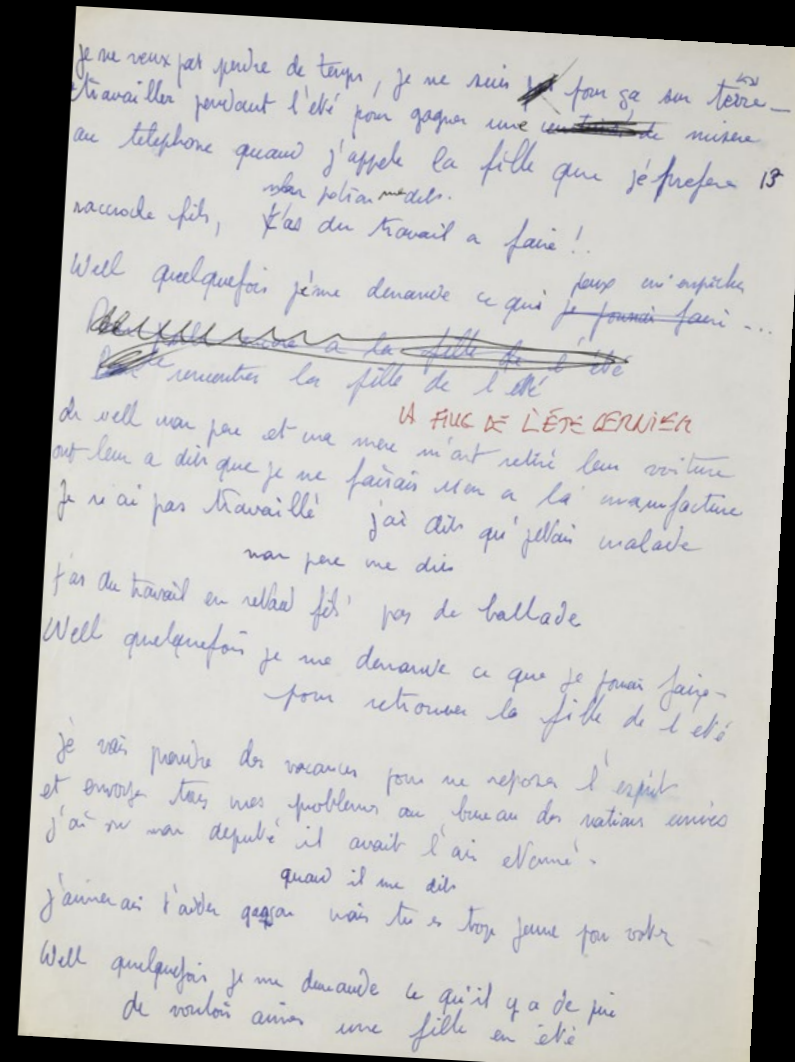 je ne veux pas perdre de temps, je ne suis pas pour ça sur terre -
travailler pendant l'été pour gagner une misere
au telephone quand j'appele la fille que jé prefere 13
mon patron me dit
raccroche fils, t'as du travail a faire !.
peux m'empêcher
Well quelquefois jéme demande ce qui je pourrai faire ...
a la fille de l'été
de rencontrer la fille de l'été
LA FILLE DE L'ÉTÉ DERNIER
oh well mon pere et ma mere m'ont retiré leur voiture
ont leur a dis que je ne faisais rien a la manufacture
Je n'ai pas travaillé j'ai dits qu'jetais malade
mon pere me dis
t'as du travail en retard fils pas de ballade
Well quelquefois je me demande ce que je pourrai faire -
pour retrouver la fille de l'eté
jé vais prendre des vacances pour me reposer l'esprit
et envoyer tous mes problemes au bureau des nations unies
j'ai vu mon deputé il avait l'air etonné -
quand il me dit
j'aimerais t'aider garçon mais tu es trop jeune pour voter -
Well quelquefois je me demande ce qu'il y a de pire
de vouloir aimer une fille en été